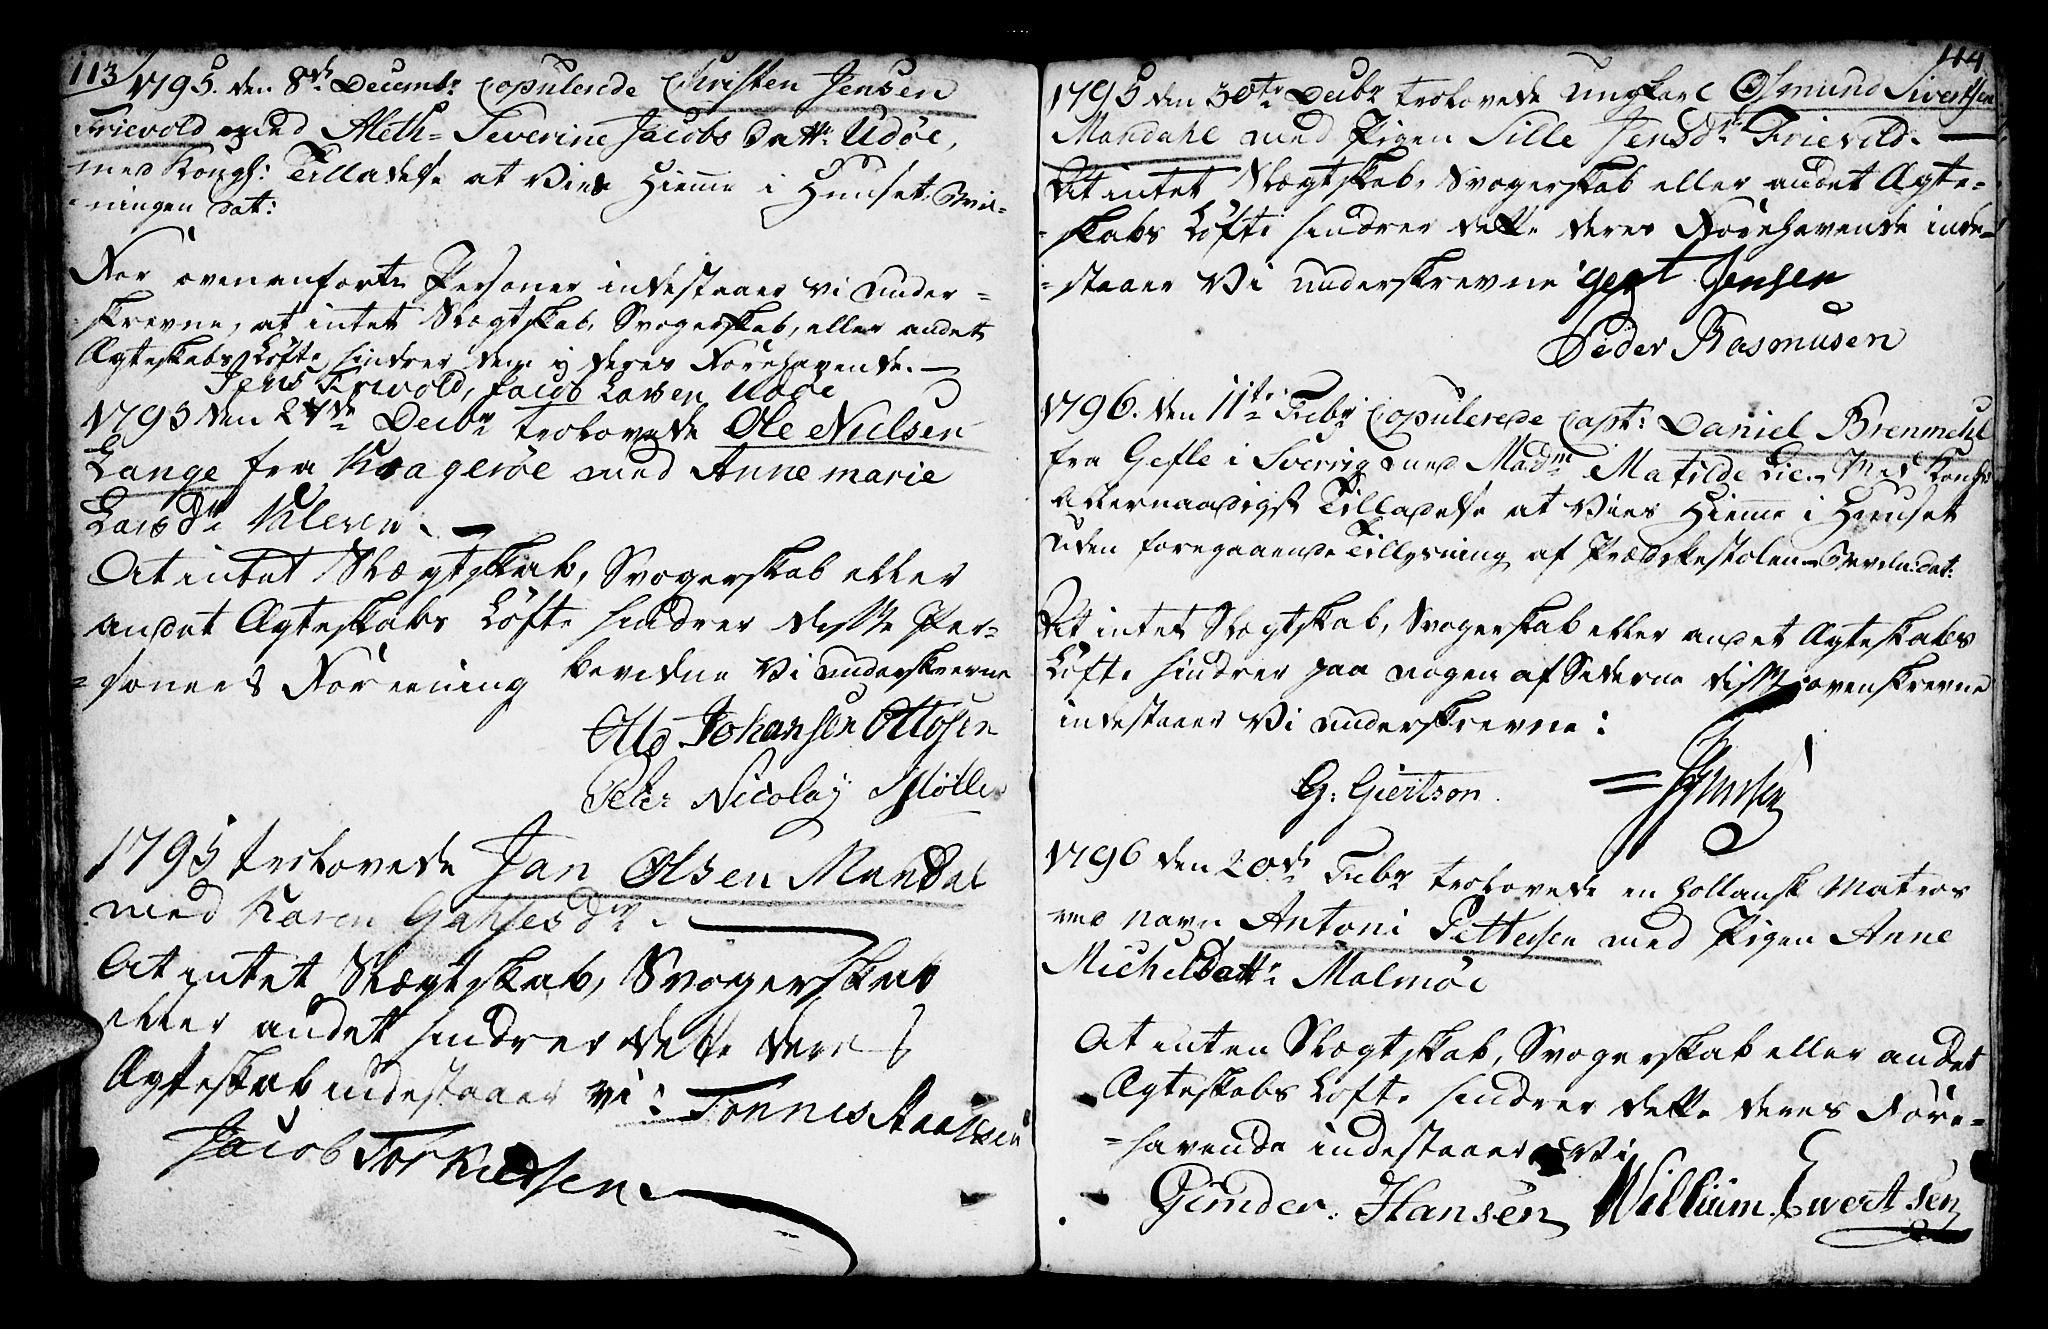 113
1795. den 8de Decembr Copulerede Christen Jensen
Trievold med Aleth-Severine Jacobs Dattr Udøe,
med Kongl: Tilladelse at Vies Hieme i Huuset, Bevil-
-ningen dat:
For ovenanførte Personer indestaaer vi under-
skrevne, at intet Slægtskab, Svogerskab, eller andet
Ægteskabs Løfte hindrer dem ij deres Forehavende.
Jens Triwold, Jacob Larsen Udøe
1795 den 27de Decbr trolovede Ole Nielsen
Lange fra Kragerøe med Anne marie
Larsdr Valeren.
At intet Slægtskab, Svogerskab eller
andet Ægteskabs Løfte hindrer disse Per-
-soners Foreening bevidne Vi underskrevne
Otto Johansen Ottosen
Peter Nicolaÿ Møller
1795 trolovede Jan Olsen Mandal
med Karen dr.
At intet Slægtskab, Svogerskab
eller andet hindrer dette deres
Ægteskab indestaaer vi: Tønnes Aanesen
Jacob Torkiedsen
114
1795 den 30te Decbr trolovede ungkarl Osmund Sivertsen
Mandahl med Pigen Sille Jensdr Trievold.
At intet Slægtskab, Svogerskab eller andet Ægte-
-skabs Løfte hindrer dette deres Forehavende inde-
-staaer Vi underskrevne Gert Jensen
Peder Rasmusen
1796. den 11te Febr Copulerede Capt: Daniel Brenmehl
fra Gefle i Sverrig med Madm Matilde Lie. Med Kongl:
allernaadigst Tilladelse at Vies Hieme i Huuset
uden foregaaende Tillysning af Prædikestolen Beviln: dat:
At intet Slægtskab, Svogerskab eller andet Ægteskabs
Løfte hindrer paa nogen af Siderne disse ovenskrevne
indestaaer Vi underskrevne:
G. Giertson.
1796 den 20de Febr trolovede en hollansk Matros
ved Navn Antoni Pettersen med Pigen Anne
Michelsdattr Malmøe
At inten Slægtskab, Svogerskab eller andet
Ægteskabs Løfte hindrer dette deres Fore-
-havende indestaaer Vi
Gunder. Hansen William. Evertsen